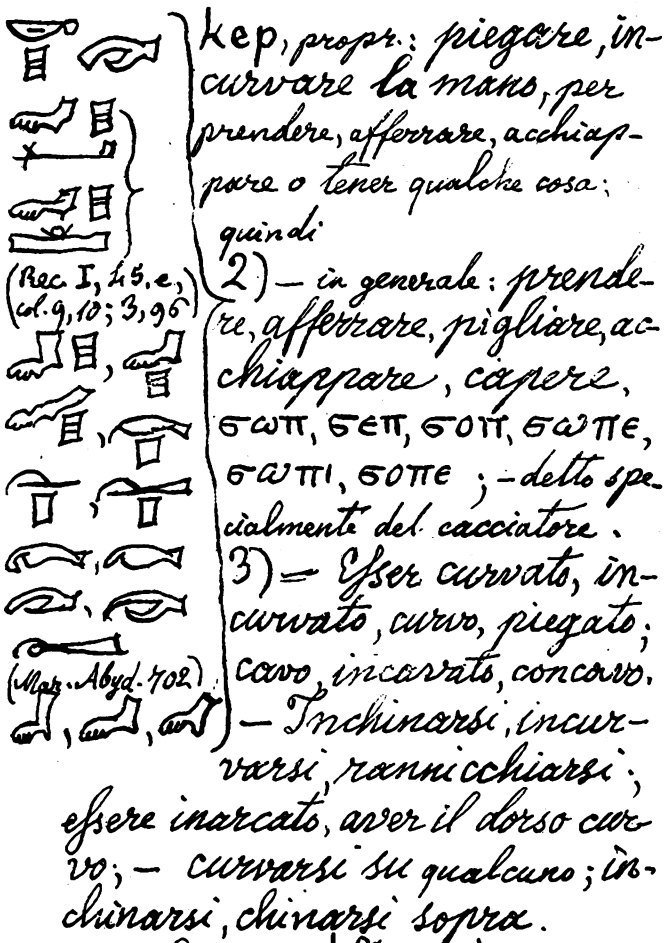 kep, propr.: piegare, in-
curvare la mano, per
prendere, afferrare, acchiap-
pare o tener qualche cosa;
quindi
(Rec. I, 45, e,
col. 9, 10; 3, 96)
2) — in generale: prende-
re, afferrare, pigliare, ac-
chiappare, capere,
ϭⲱⲡ, ϭⲉⲡ, ϭⲟⲡ, ϭⲱⲡⲉ,
ϭⲱⲡⲓ, ϭⲟⲡⲉ; – detto spe-
cialmente del cacciatore.
3) — Esser curvato, in-
curvato, curvo, piegato;
(Mar. Abyd. 702)
cavo, incavato, concavo.
— Inchinarsi, incur-
varsi, rannicchiarsi;
essere inarcato, aver il dorso cur-
vo; — curvarsi su qualcuno; in-
chinarsi, chinarsi sopra.